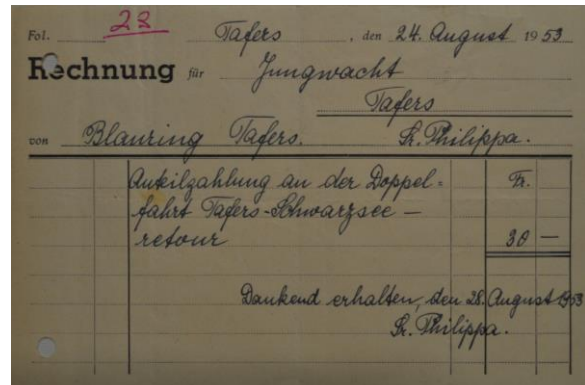 Fol. 22 Tafers, den 24. August 1953
Rechnung für Jungwacht
Tafers
von Blauring Tafers. Sr. Philippa.
Anteilzahlung an der Doppel= Fr.
fahrt Tafers-Schwarzsee —
retour 30 —
Dankend erhalten, den 28. August 1953
Sr. Philippa.